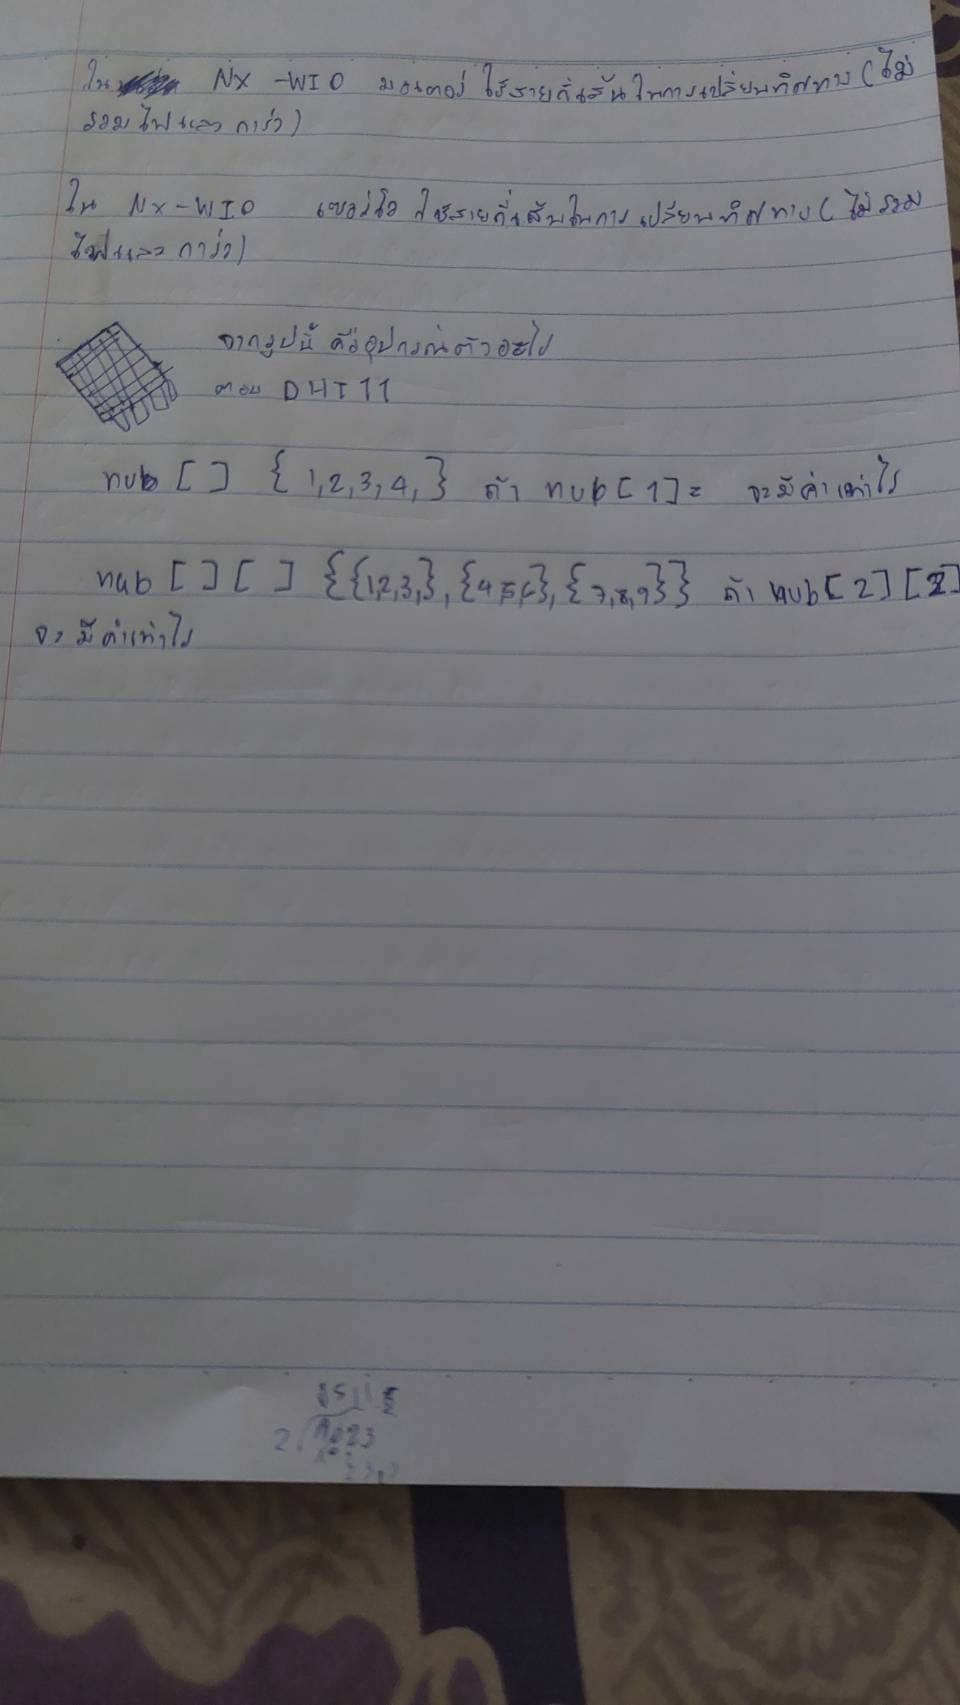 ใน NX -WIO มอเตอร์ ใช้สายกี่เส้น ในการเปลี่ยนทิศทาง (ไม่
รวม ไฟ และ กาว์ว)
ใน NX-WIO เซอร์โว ใช้สายกี่เส้นในการ เปลี่ยนทิศทาง ( ไม่ รวม
ไฟและ กาว์ว)
จากรูปนี้ คืออุปกรณ์ตัวอะไร
ตอบ DHT11
nub [ ] { 1,2,3,4, } ถ้า nub [ 1 ] = จะมีค่าเท่าไร
nub [ ] [ ] {{1,2,3,}, {4,5,6}, {7,8,9}} ถ้า nub [ 2 ] [ 2 ]
จะ มีค่าเท่าไร
2 1023